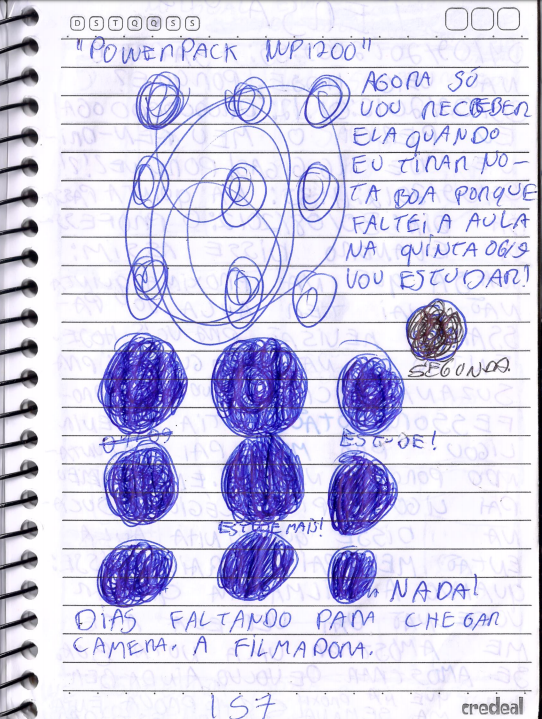 D S T Q Q S S
"POWERPACK MP1200"
AGORA SÓ
VOU RECEBER
ELA QUANDO
EU TIRAR NO-
TA BOA PORQUE
FALTEI A AULA
NA QUINTA 06/9
VOU ESTUDAR!
SEGUNDA.
ESTUDE!
ESTUDE MAIS!
NADA!
DIAS FALTANDO PARA CHEGAR
CAMERA. A FILMADORA.
157
credeal